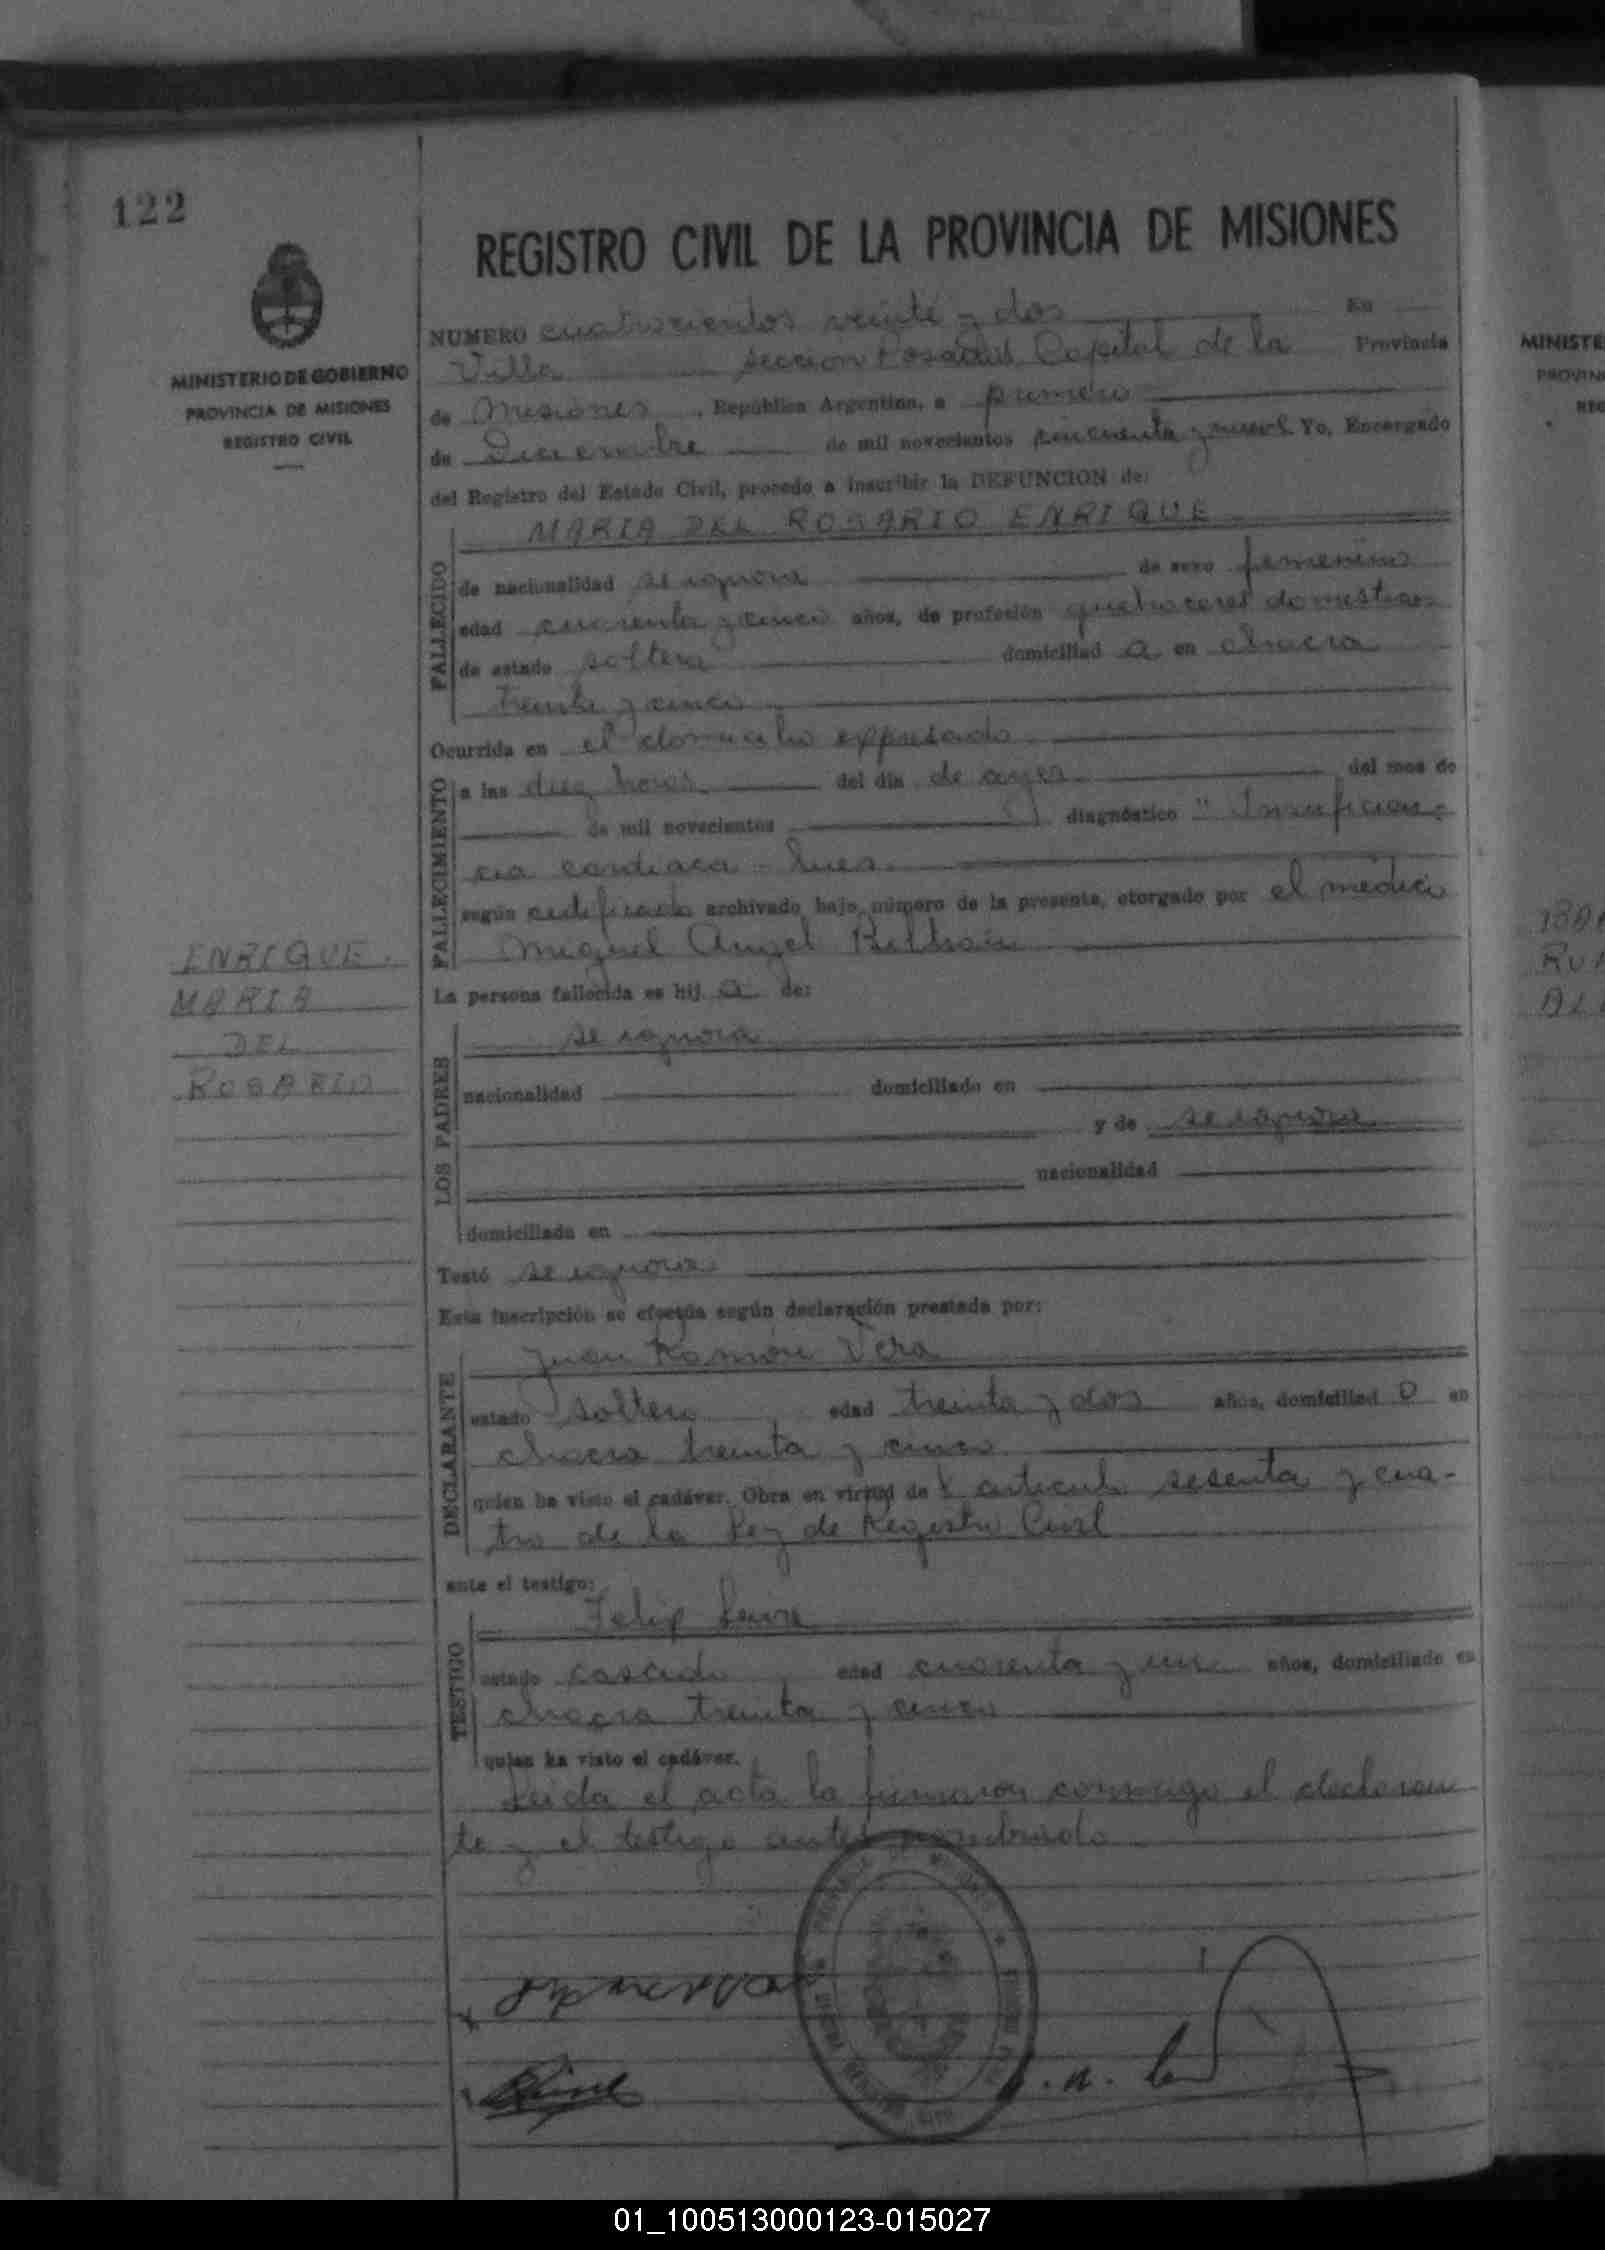 122
REGISTRO CIVIL DE LA PROVINCIA DE MISIONES
MINISTERIO DE GOBIERNO
PROVINCIA DE MISIONES
REGISTRO CIVIL
NUMERO cuatrocientos veinte y dos En
Villa seccion Posadas Capital de la Provincia
de Misiones, República Argentina, a primero
de Diciembre de mil novecientos cincuenta y nueve Yo, Encargado
del Registro del Estado Civil, procedo a inscribir la DEFUNCION de:
MARIA DEL ROSARIO ENRIQUE
FALLECIDO
de nacionalidad se ignora de sexo femenino
edad cuarenta y cinco años, de profesión quehaceres domesticos
de estado soltera domiciliad a en chacra
treinta y cinco
Ocurrida en el domicilio expresado
FALLECIMIENTO
a las diez horas del día de ayer del mes de
de mil novecientos diagnóstico "Insuficien-
cia cardiaca - lues
según certificado archivado bajo número de la presente, otorgado por el médico
Miguel Angel Beltran
ENRIQUE
MARIA
DEL
ROSARIO
La persona fallecida es hij a de:
LOS PADRES
se ignora
nacionalidad domiciliado en
y de se ignora
nacionalidad
domiciliada en
Testó se ignora
Esta inscripción se efectúa según declaración prestada por:
DECLARANTE
Juan Ramón Vera
estado soltero edad treinta y dos años, domiciliad o en
chacra treinta y cinco
quien ha visto el cadáver. Obra en virtud de l articulo sesenta y cua-
tro de la Ley de Registro Civil
ante el testigo:
TESTIGO
Felip
estado casado edad cuarenta y un años, domiciliado en
chacra treinta y cinco
quien ha visto el cadáver.
Leida el acta la firmaron conmigo el declaran
te y el testigo antes nombrado
MINISTE
PROVIN
REG
01_100513000123-015027